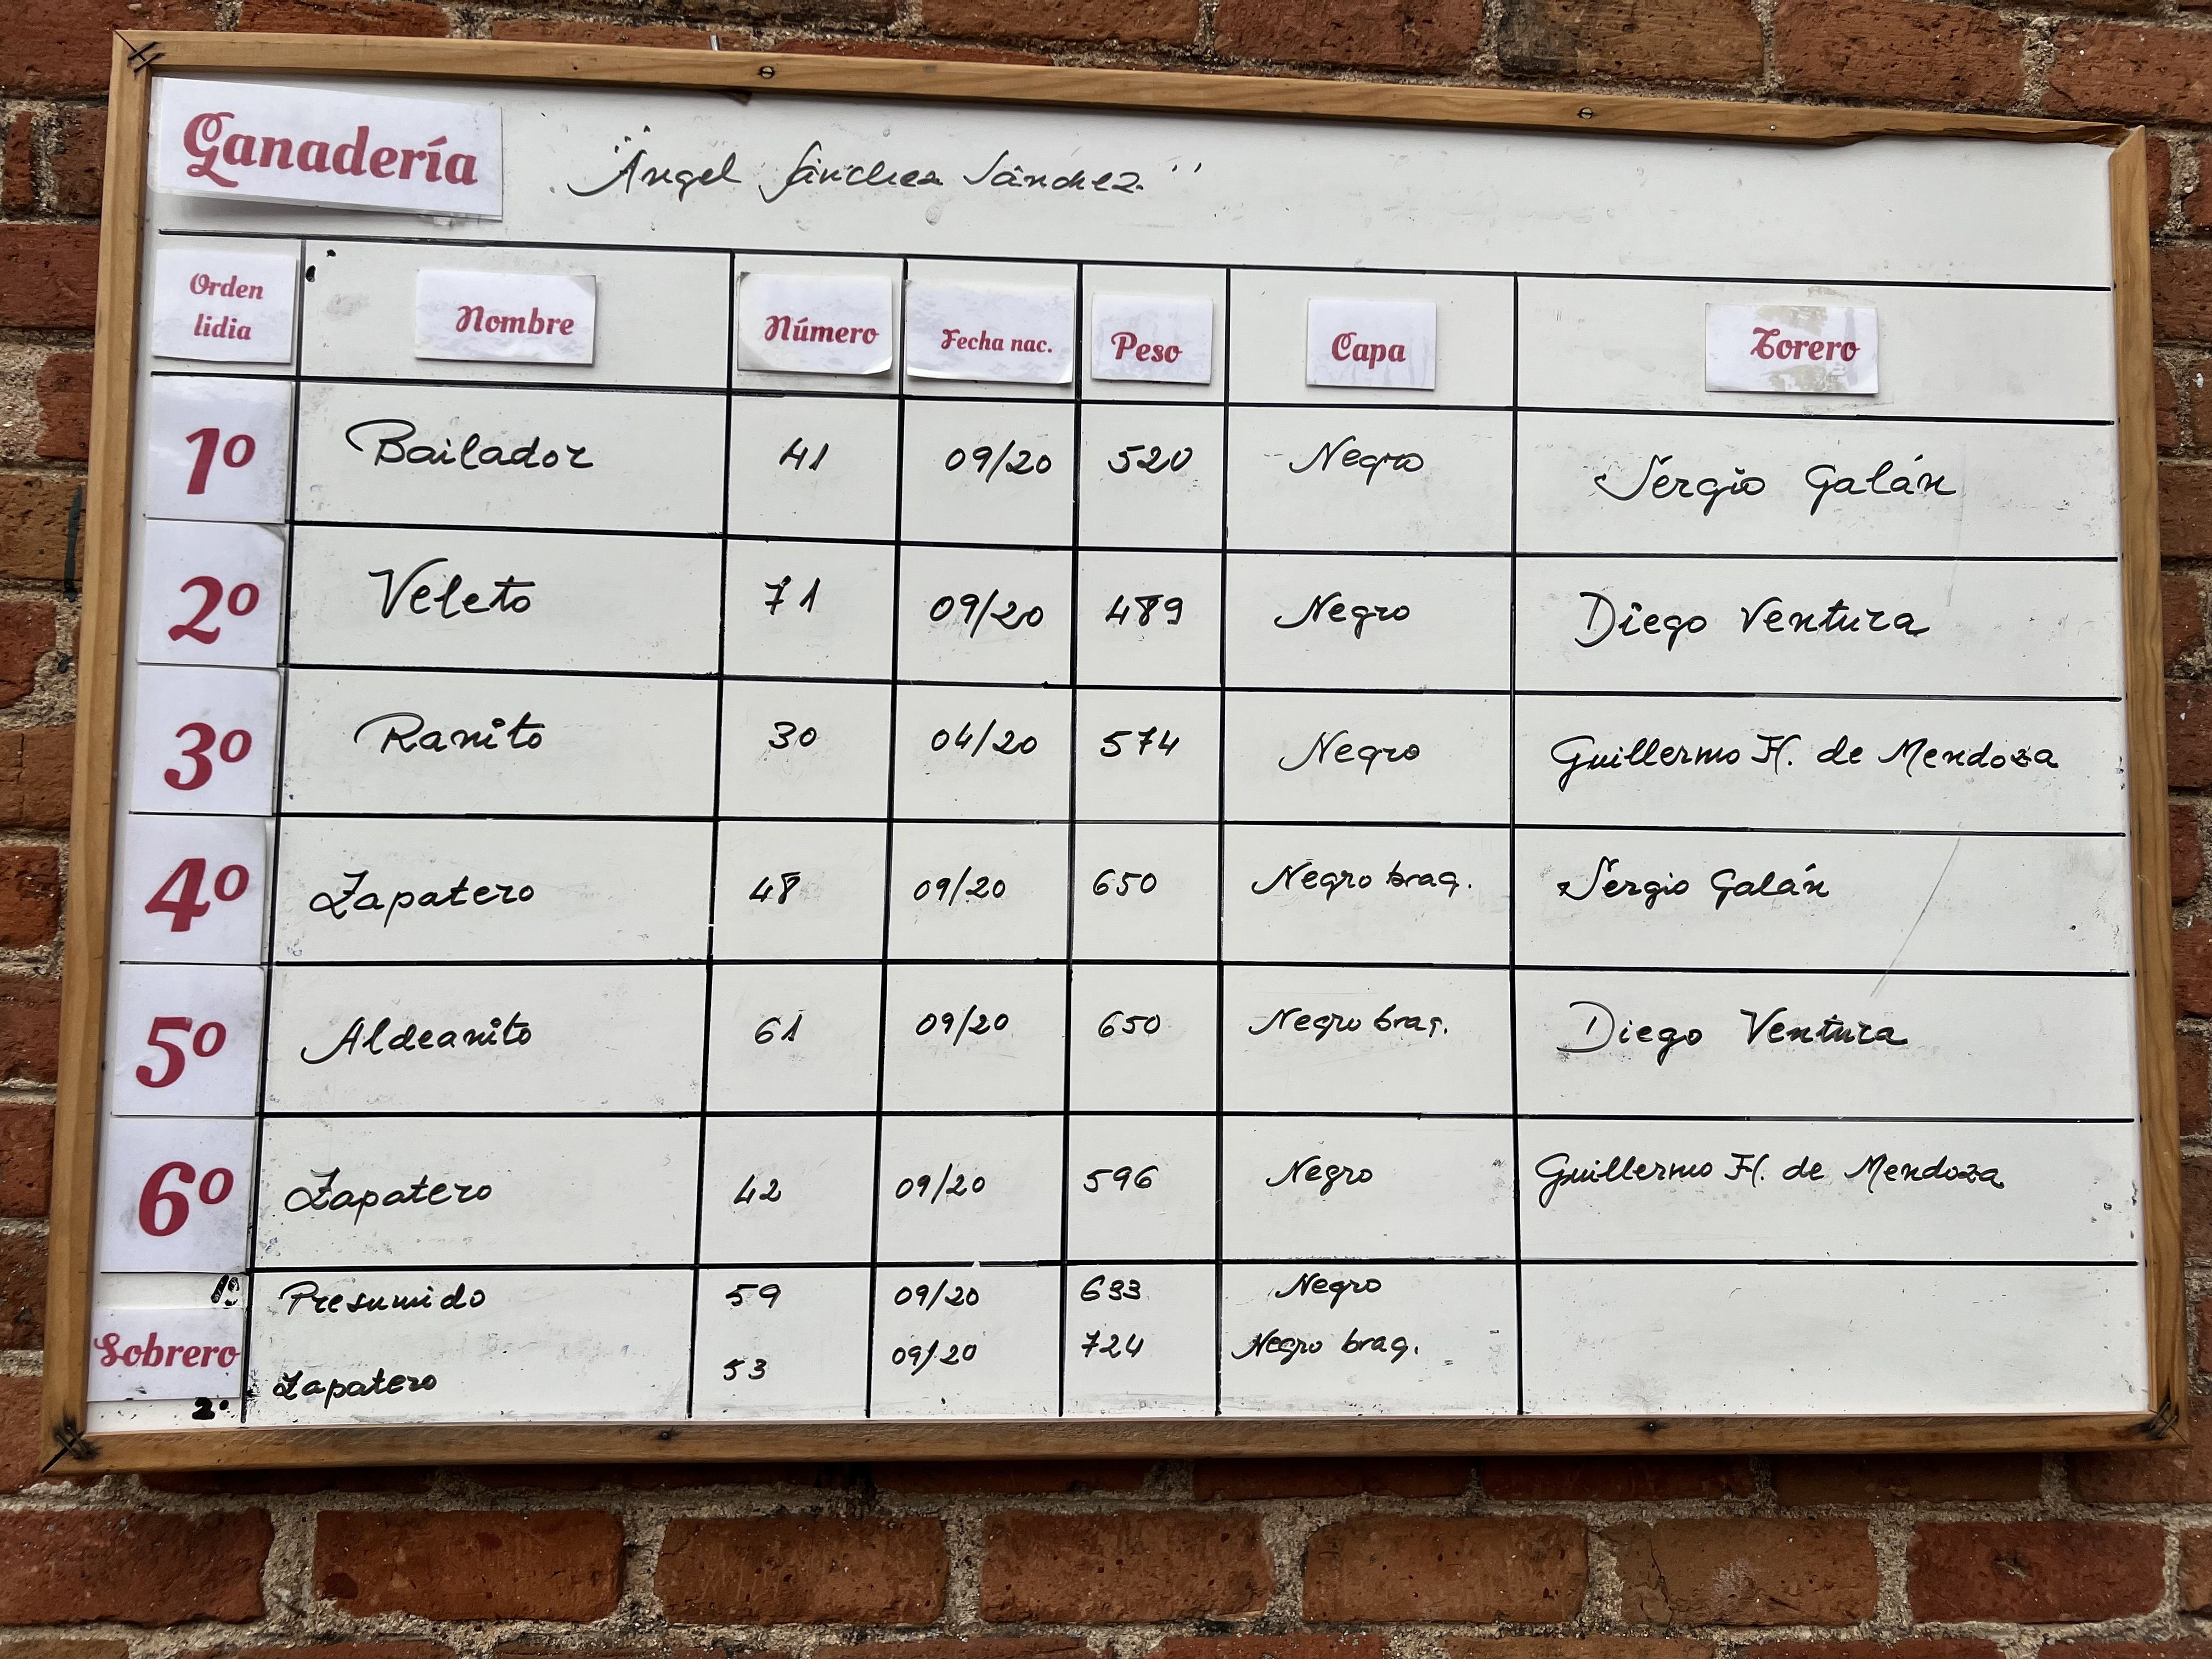 Ganadería "Ángel Sánchez Sánchez"
Orden lidia Nombre Número Fecha nac. Peso Capa Torero
1º Bailador 41 09/20 520 Negro Sergio Galán
2º Veleto 71 09/20 489 Negro Diego Ventura
3º Ranito 30 04/20 574 Negro Guillermo H. de Mendoza
4º Zapatero 48 09/20 650 Negro brag. Sergio Galán
5º Aldeanito 61 09/20 650 Negro brag. Diego Ventura
6º Zapatero 42 09/20 596 Negro Guillermo H. de Mendoza
Sobrero
1º Presumido 59 09/20 633 Negro
2º Zapatero 53 09/20 724 Negro brag.